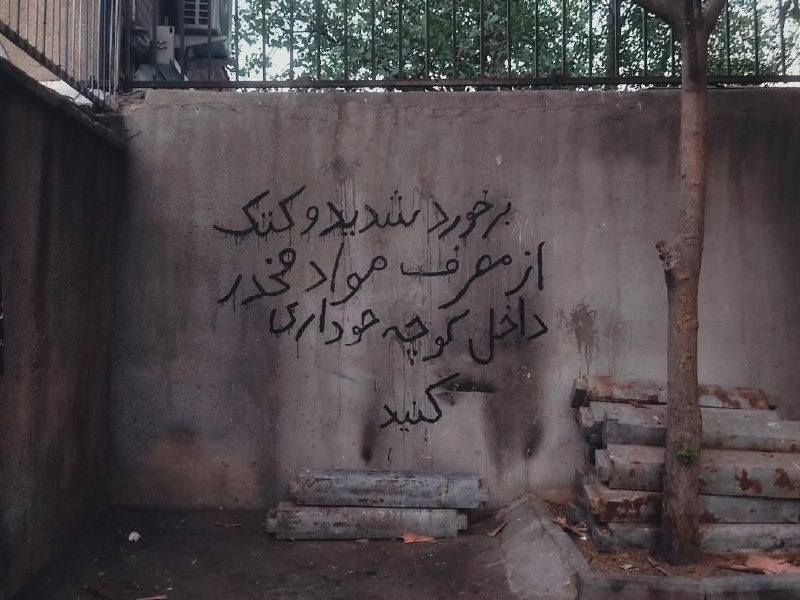 برخورد شدید و کتک
از مصرف مواد مخدر
داخل کوچه خوداری
کنید